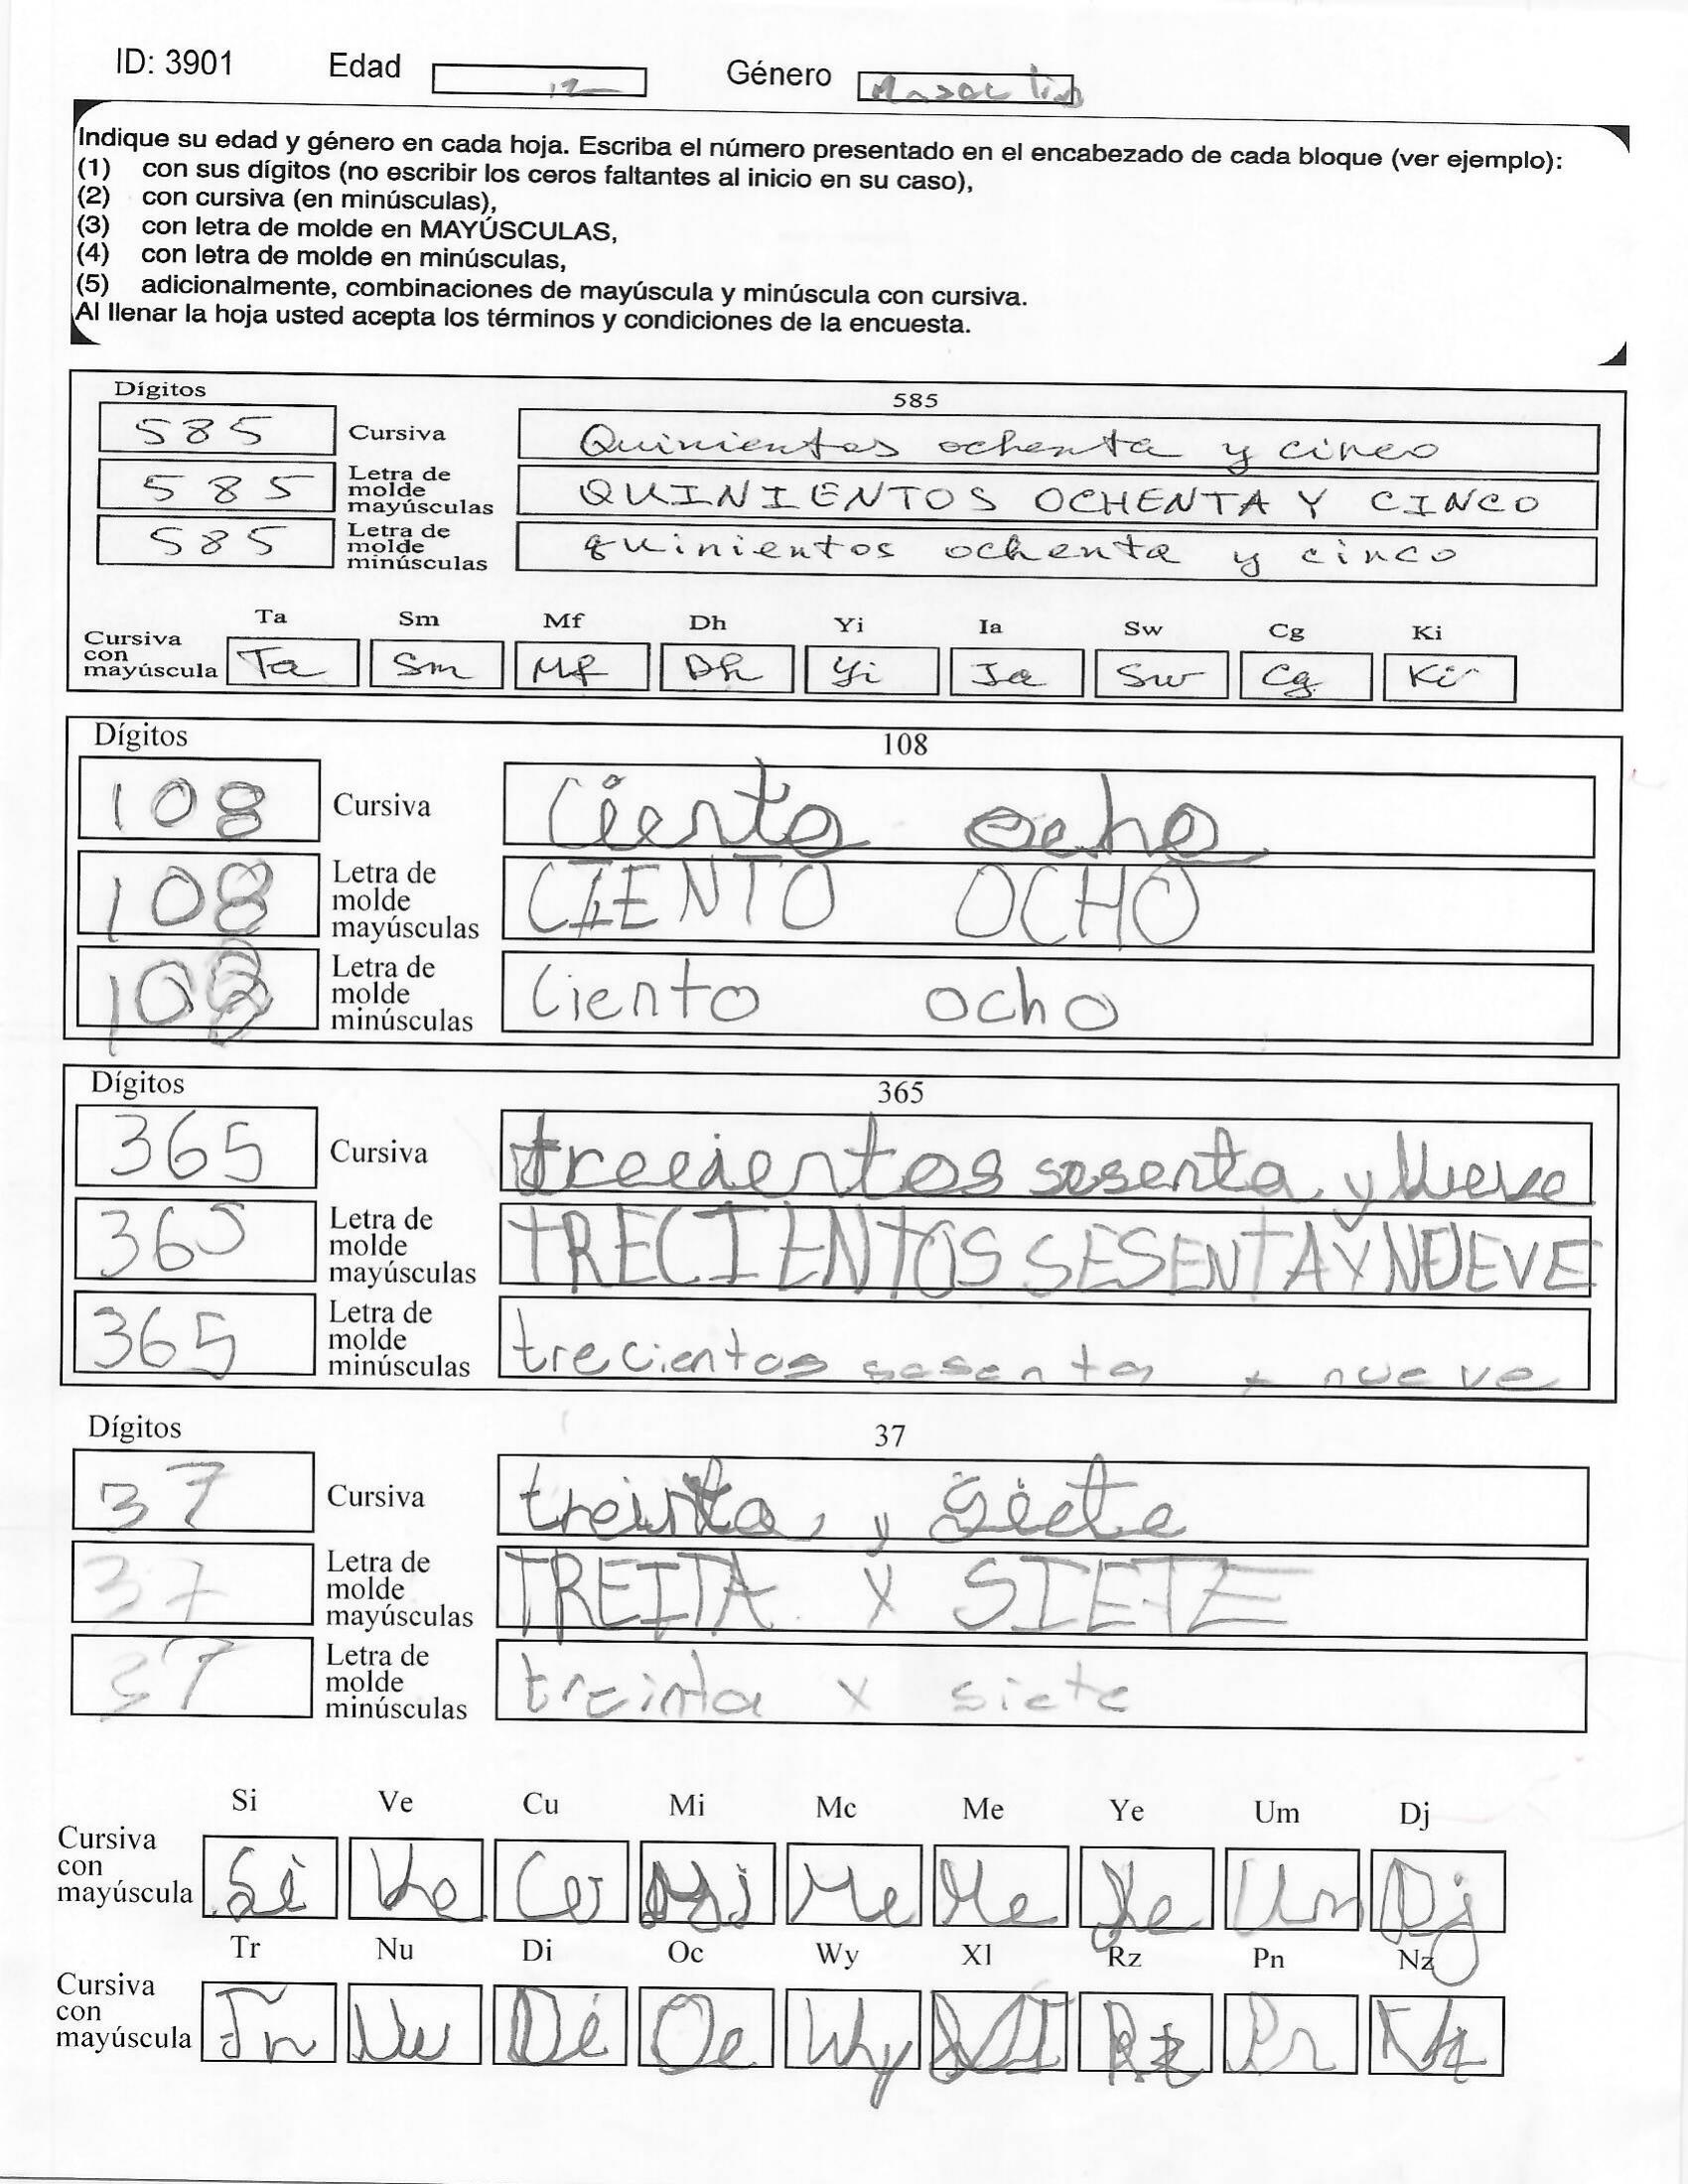 ID: 3901 Edad 12 Género
Indique su edad y género en cada hoja. Escriba el número presentado en el encabezado de cada bloque (ver ejemplo):
(1) con sus dígitos (no escribir los ceros faltantes al inicio en su caso),
(2) con cursiva (en minúsculas),
(3) con letra de molde en MAYÚSCULAS,
(4) con letra de molde en minúsculas,
(5) adicionalmente, combinaciones de mayúscula y minúscula con cursiva.
Al llenar la hoja usted acepta los términos y condiciones de la encuesta.
Dígitos 585
585 Cursiva Quinientos ochenta y cinco
585 Letra de molde mayúsculas QUINIENTOS OCHENTA Y CINCO
585 Letra de molde minúsculas quinientos ochenta y cinco
Ta Sm Mf Dh Yi Ia Sw Cg Ki
Cursiva con mayúscula Ta Sm Mf Dh Yi Ia Sw Cg Ki
Dígitos 108
108 Cursiva Ciento ocho
108 Letra de molde mayúsculas CIENTO OCHO
108 Letra de molde minúsculas Ciento ocho
Dígitos 365
365 Cursiva trecientos sesenta y nueve
365 Letra de molde mayúsculas tRECIENtOS SESENTA Y NUEVE
365 Letra de molde minúsculas trecientos sesenta y nueve
Dígitos 37
37 Cursiva treinta y siete
37 Letra de molde mayúsculas TREITA Y SIETE
37 Letra de molde minúsculas treinta y siete
Si Ve Cu Mi Mc Me Ye Um Dj
Cursiva con mayúscula Si Ve Cu Mi Me Me Ye Um Dj
Tr Nu Di Oc Wy Xl Rz Pn Nz
Cursiva con mayúscula Tr Nu Di Oc Wy Rz Pn Nz